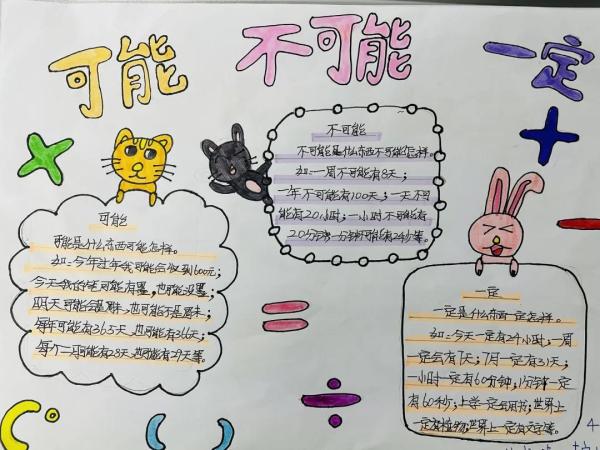 可能
不可能
一定
不可能
不可能是什么东西不可能怎样。
如:一周不可能有8天;
一年不可能有100天;一天不可
能有20小时;一小时不可能有
20分钟;一分钟不可能有24秒等。
可能
可能是什么东西可能怎样。
如:今年过年我可能会收到600元;
今天我的笔可能有墨,也可能没墨;
明天可能会是周末,也可能不是周末;
每年可能有365天,也可能有366天;
每个二月可能有28天,也可能有29天等。
一定
一定是什么东西一定怎样。
如:今天一定有24小时;一周
一定会有7天;7月一定有31天;
一小时一定有60分钟;1分钟一定
有60秒;上学一定会用书;世界上
一定有植物;世界上一定有文字等。